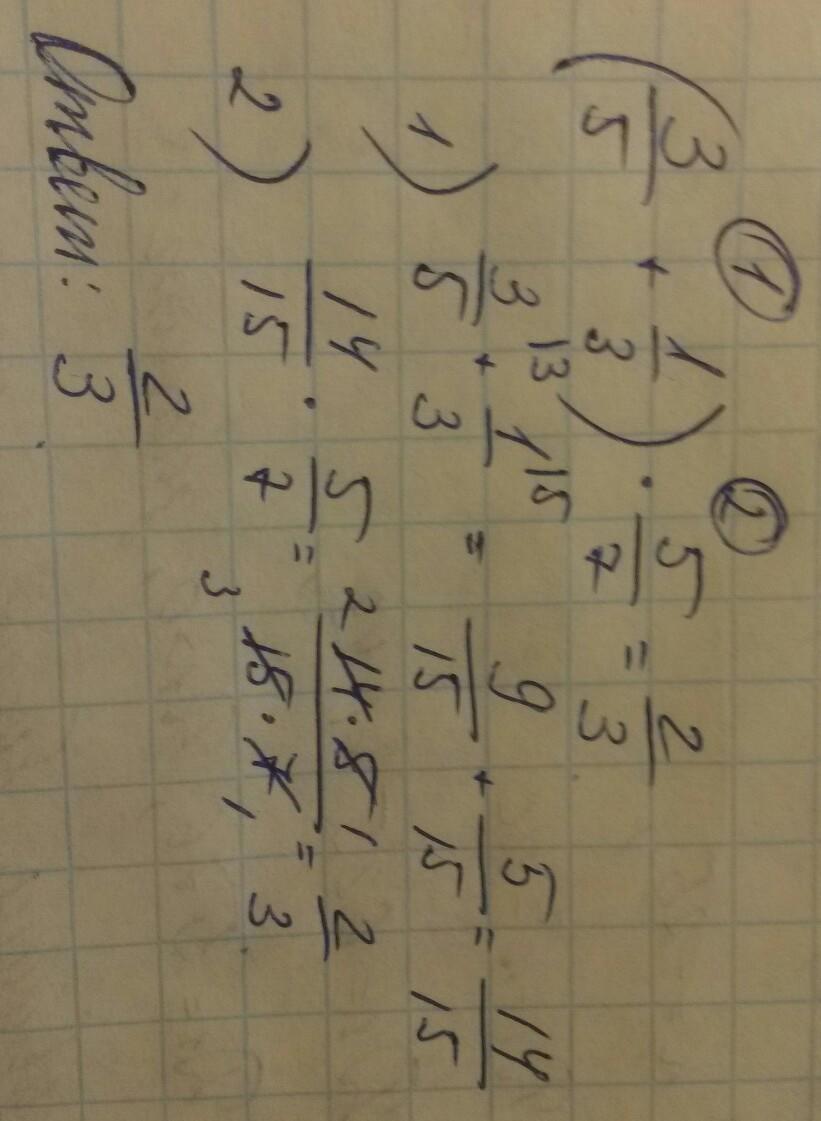 ① ②
(3/5 + 1/3) · 5/7 = 2/3
1) 3/5 |3 + 1/3 |5 = 9/15 + 5/15 = 14/15
2) 14/15 · 5/7 = 2 14 · 5 1 / 3 15 · 7 1 = 2/3
Ответ: 2/3